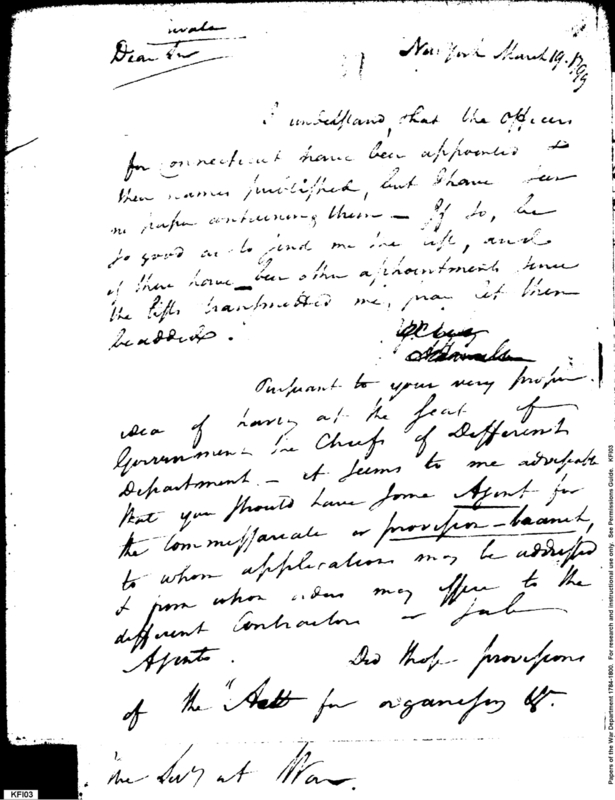 Private
Dear Sir
New York March 19. 1799
I understand, that the officers
for Connecticut have been appointed &
their names published, but I have seen
no paper containing them — If so, be
so good as to send me the list, and
if there have been other appointments since
the lists transmitted me, pray let them
be added.
Pursuant to your very proper
idea of having at the Seat of
Government the Chiefs of Different
Department — it seems to me adviseable
that you should have some Agent for
the Commissariate or provision-branch,
to whom applications may be addressed
& from whom orders may issue to the
different Contractors or
Agents. Did those provisions
of the "Act for organising &c.
The Secy at War.
KFI03
Papers of the War Department 1784-1800. For research and instructional use only. See Permissions Guide. KFI03